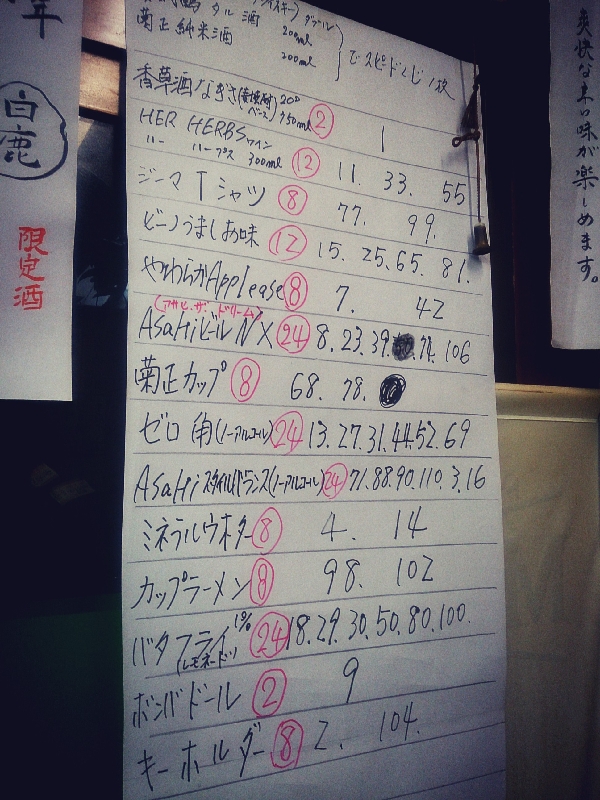 タル酒 200ml
菊正純米酒 300ml
でスピードくじ1枚
香草酒なぎさ(麦焼酎ベース) 20D 750ml ② 1
HER HERBSワイン
ハー ハーブス 300ml ⑫ 11. 33. 55
ジーマ Tシャツ ⑧ 77. 99.
ビーノうましあ味 ⑫ 15. 25. 65. 81.
やわらかApplease ⑧ 7. 42
(アサヒ・ザ・ドリーム)
AsaHiビール NX ㉔ 8. 23. 39. 74. 106
菊正カップ ⑧ 68. 78.
ゼロ 角(ノーアルコール) ㉔ 13. 27. 31. 44. 52. 69
AsaHiスタイルバランス(ノーアルコール) ㉔ 71. 88. 90. 110. 3. 16
ミネラルウオター ⑧ 4. 14
カップラーメン ⑧ 98. 102
バタフライ 1% ㉔ 18. 29. 30. 50. 80. 100.
(レモネード)
ボンバドール ② 9
キーホルダー ⑧ 2. 104.
年
白鹿
限定酒
爽快な味が楽しめます。